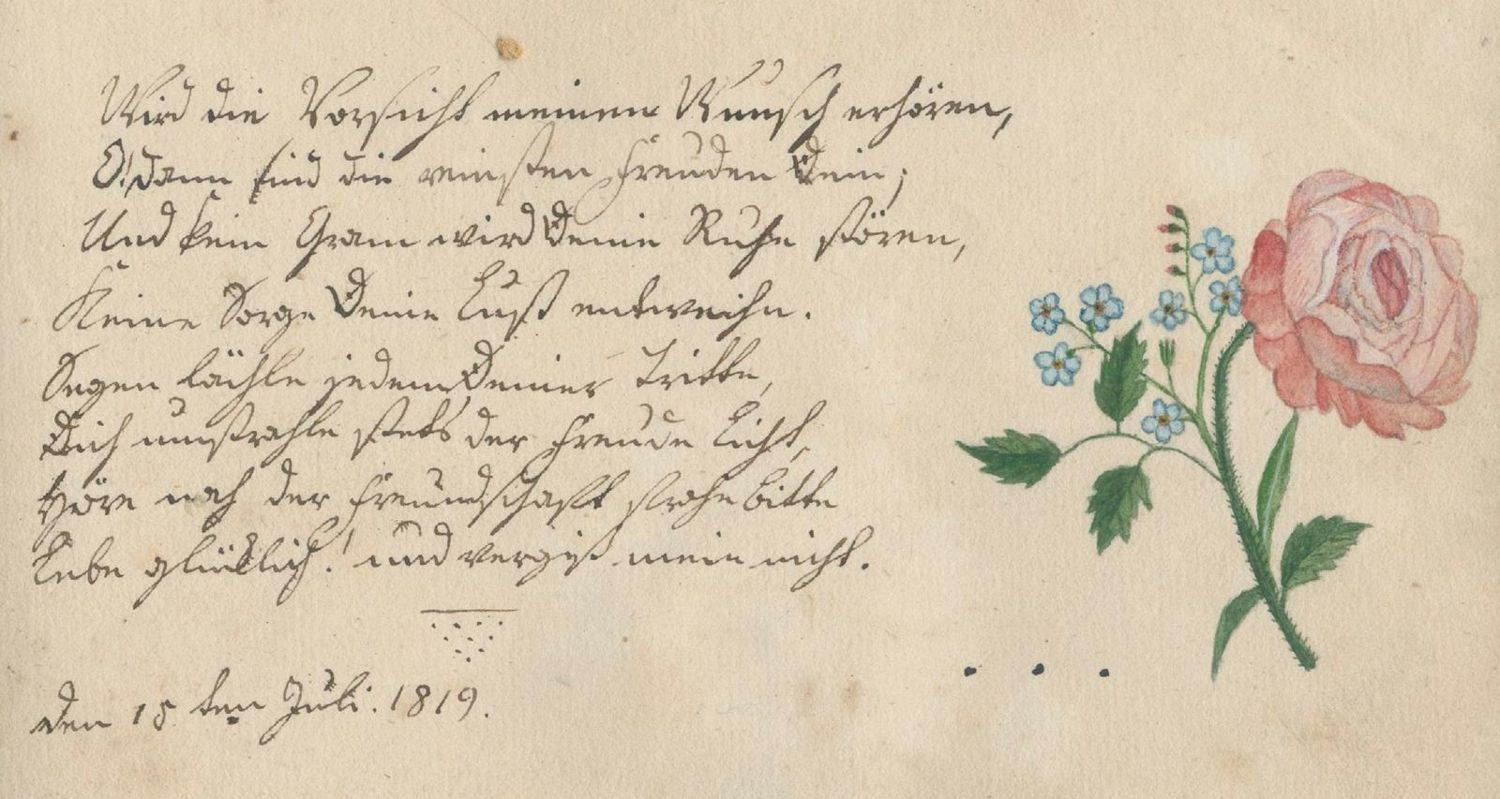 Wird die Vorsicht meinen Wunsch erhören,
O! dann sind die reinsten Freuden Dein;
Und kein Gram wird Deine Ruhe stören,
Keine Sorge Deine Lust entweihn.
Segen lächle jedem Deiner Tritte,
Dich umstrahle stets der Freude Licht,
Höre noch der Freundschaft frohe Bitte
Lebe glücklich! und vergiß mein nicht.
den 15 ten Juli. 1819.